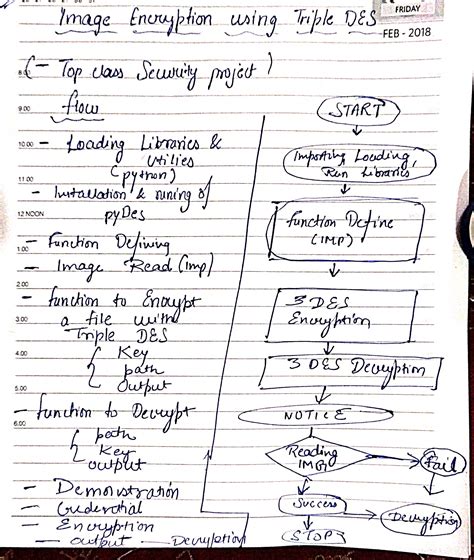 Image Encryption using Triple DES
FRIDAY
FEB - 2018
(- Top class Security project)
flow
8.00
9.00
10.00
11.00
12 NOON
1.00
2.00
3.00
4.00
5.00
6.00
- Loading Libraries &
Utilies
(python)
- Installation & runing of
pyDes
- Function Defining
- Image Read (imp)
- function to Encrypt
a file with
Triple DES
Key
path
output
- function to Decrypt
path
Key
output
- Demonstration
- Credential
- Encryption
- output - Decryption
START
Importing, Loading,
Run Libraries
function Define
(IMP)
3 DES
Encryption
3 DES Decryption
NOTICE
Reading
IMG
fail
Success
Decryption
STOP